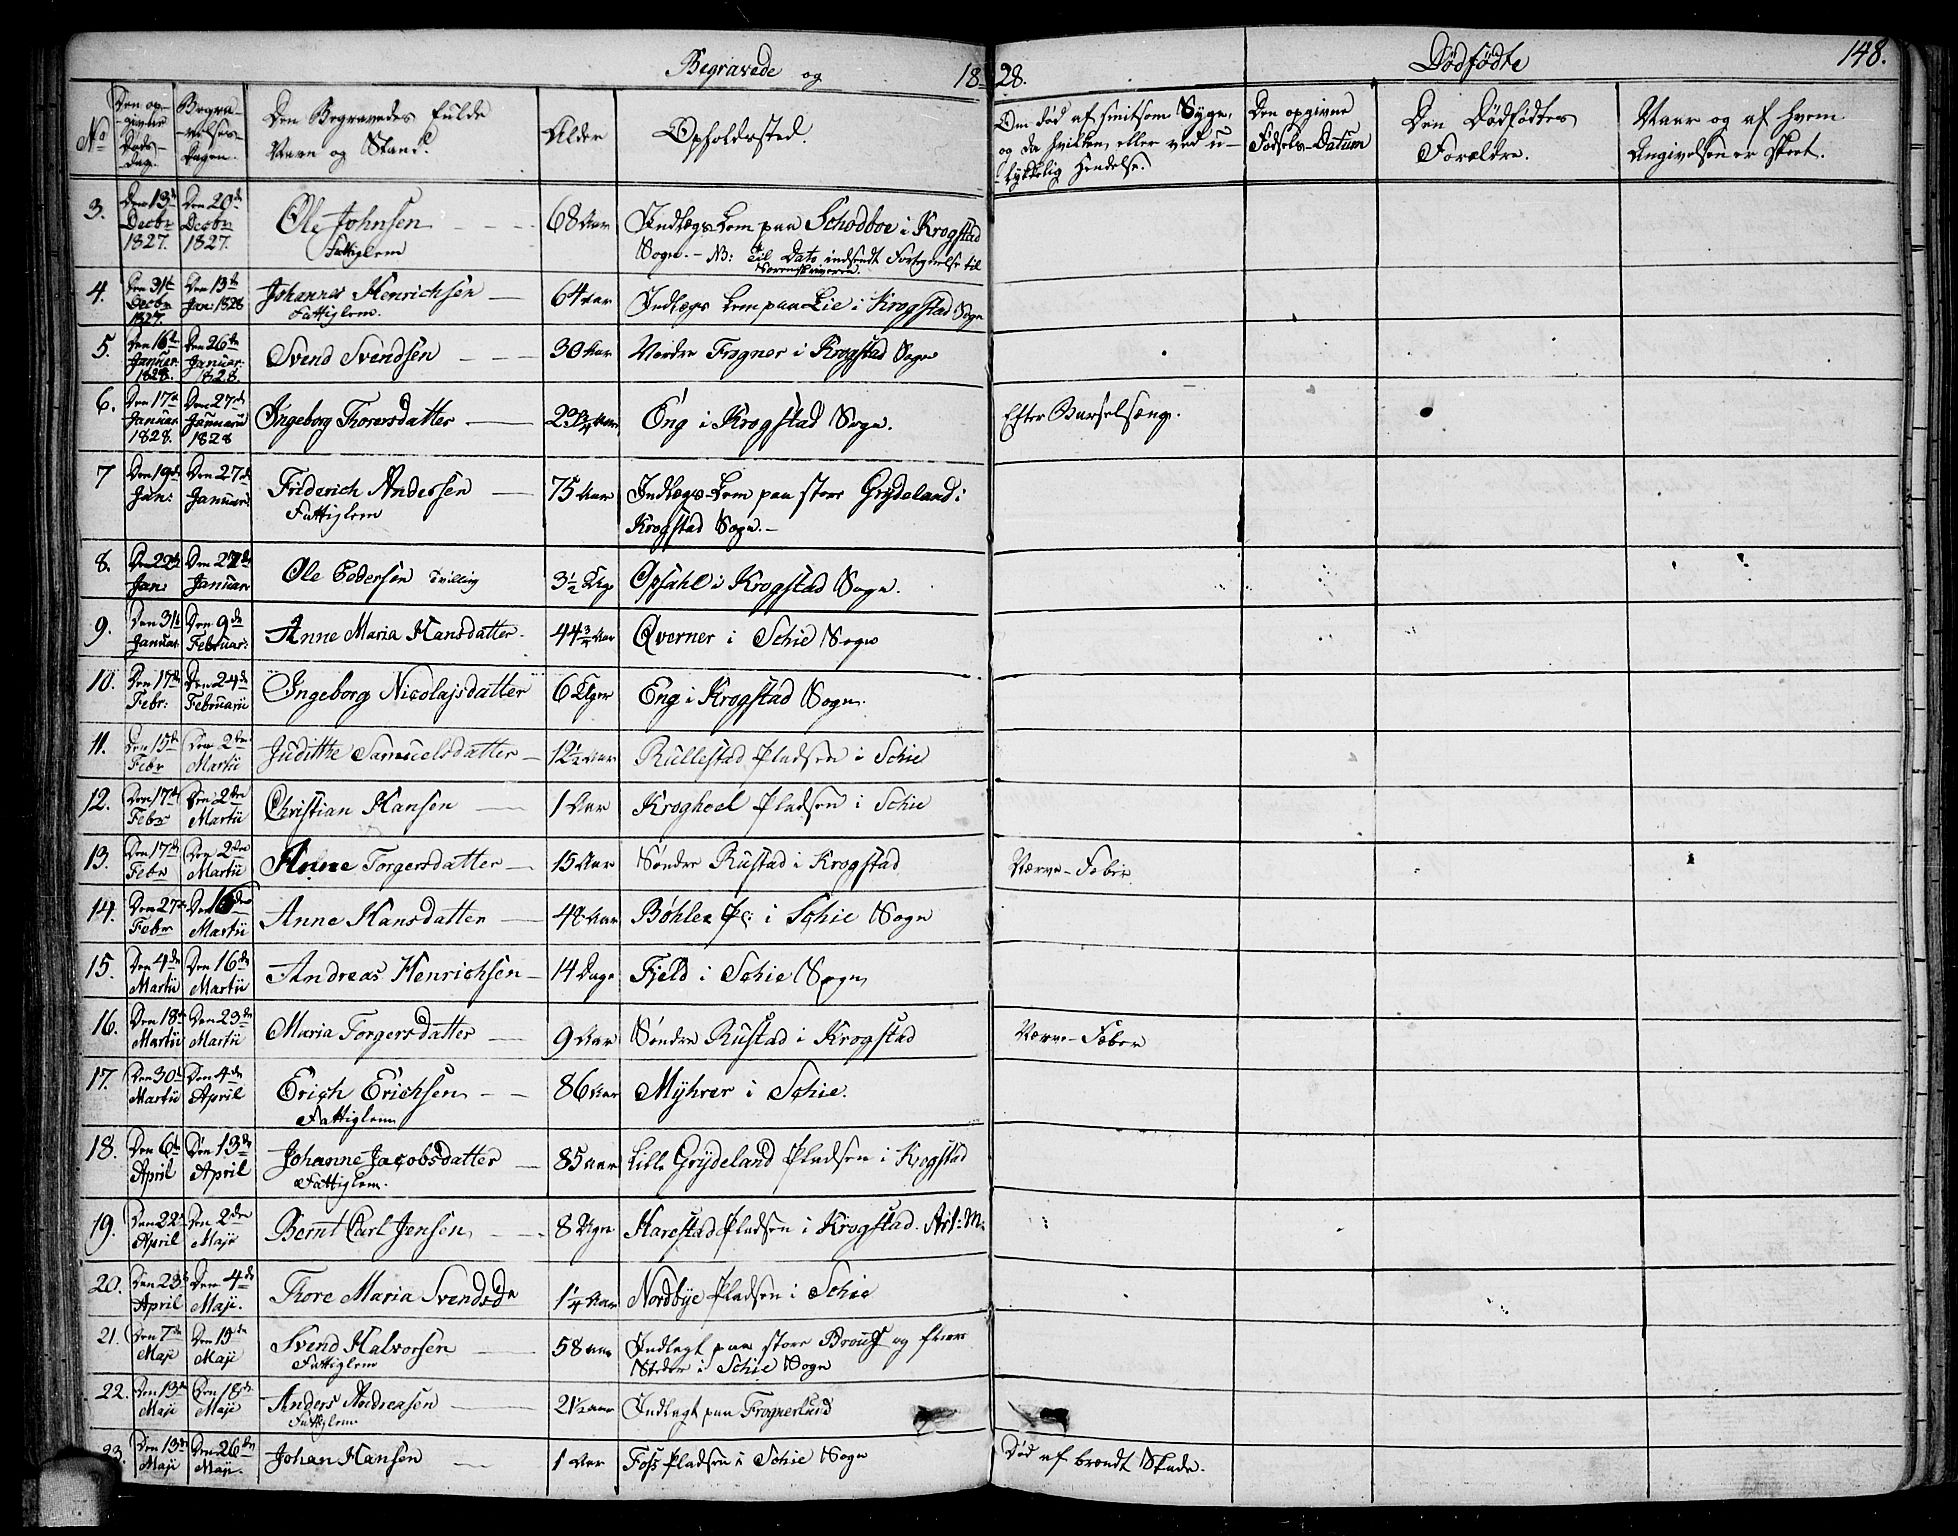 Begravede og 1828. Dødfødte 148.
No Den opgivne Døds-dag. Begravelses-Dagen. Den Begravedes fulde Navn og Stand. Alder Opholdssted. Om død af smitsom Syge, og da hvilken, eller ved ulykkelig Hendelse. Den opgivne Fødsels-Datum Den Dødfødtes Forældre. Naar og af hvem Angivelsen er skeet.
3. Den 13de Decbr 1827. Den 20de Decbr 1827. Ole Johnsen Fattiglem 68 Aar Indlægs Lem paa Schodboe i Krogstad Sogn. - NB: Til Dato indsendt Fortegnelse til Sorenskriveren
4. Den 31te Decbr 1827. Den 13de Jan: 1828 Johannes Henrichsen Fattiglem. 64 Aar Indlægs Lem paa Lie i Krogstad Sogn
5. Den 16de Januar. 1828. Den 26de Januar. 1828. Svend Svendsen 30 Aar Nordre Frogner i Krogstad Sogn
6. Den 17de Januar 1828. Den 27de Januarii 1828 Ingeborg Thorersdatter Aar Eng i Krogstad Sogn. Efter Barselsæng.
7 Den 19de Jan: Den 27de Januar: Friderich Andersen Fattiglem 75 Aar Indlægs-Lem paa store Grydeland i Krogstad Sogn. -
8. Den 22de Jan: Den 27de Januar Ole Pedersen Tvilling 3½ Uge Opsahl i Krogstad Sogn.
9. Den 31te Januar. Den 9de Februar: Anne Maria Hansdatter. 44¾ Aar Qverner i Schie Sogn
10. Den 17de Febr: Den 24de Februarii Ingeborg Nicolajsdatter 6 Uger Eng i Krogstad Sogn.
11. Den 15de Febr Den 2den Martii Judithe Samuelsdatter 12½ Aar Rullestad Pladsen i Schie
12. Den 17de Febr Den 2den Martii Christian Hansen 1 Aar Kroghoel Pladsen i Schie
13. Den 17de Febr Den 2den Martii Anne Torgersdatter 15 Aar Søndre Rustad i Krogstad Nerve-Feber
14. Den 27de Febr Den 16de Martii Anne Hansdatter 48 Aar Bøhler Pl: i Schie Sogn
15. Den 4de Martii Den 16de Martii Andreas Henrichsen 14 Dage Fjeld i Schie Sogn
16. Den 18de Martii Den 23de Martii Maria Torgersdatter 9 Aar Søndre Rustad i Krogstad Nerve-Feber
17. Den 30te Martii Den 4de April Erich Erichsen Fattiglem 86 Aar Myhrer i Schie.
18. Den 6te April Den 13de April Johanne Jacobsdatter Fattiglem. 85 aar Lille Grydeland Pladsen i Krogstad
19. Den 22de April Den 2den Maji Bernt Carl Jensen 8 Ugr Harestad Pladsen i Krogstad. Art: M:
20. Den 23de April Den 4de Maji. Thore Maria Svendsdr 1¼ Aar Nordbye Pladsen i Schie
21. Den 7de Maji Den 19de Maji Svend Halvorsen Fattiglem 58 aar Indlagt paa store Brous og flere Steder i Schie Sogn
22. Den 13de Maji Den 18de Maji Anders Andreasen Fattiglem 21½ aar Indlagt paa Frognerlund
23. Den 13de Maji Den 26de Maji. Johan Hansen 1 Aar Foss Pladsen i Schie Sogn Død af brændt Skade.